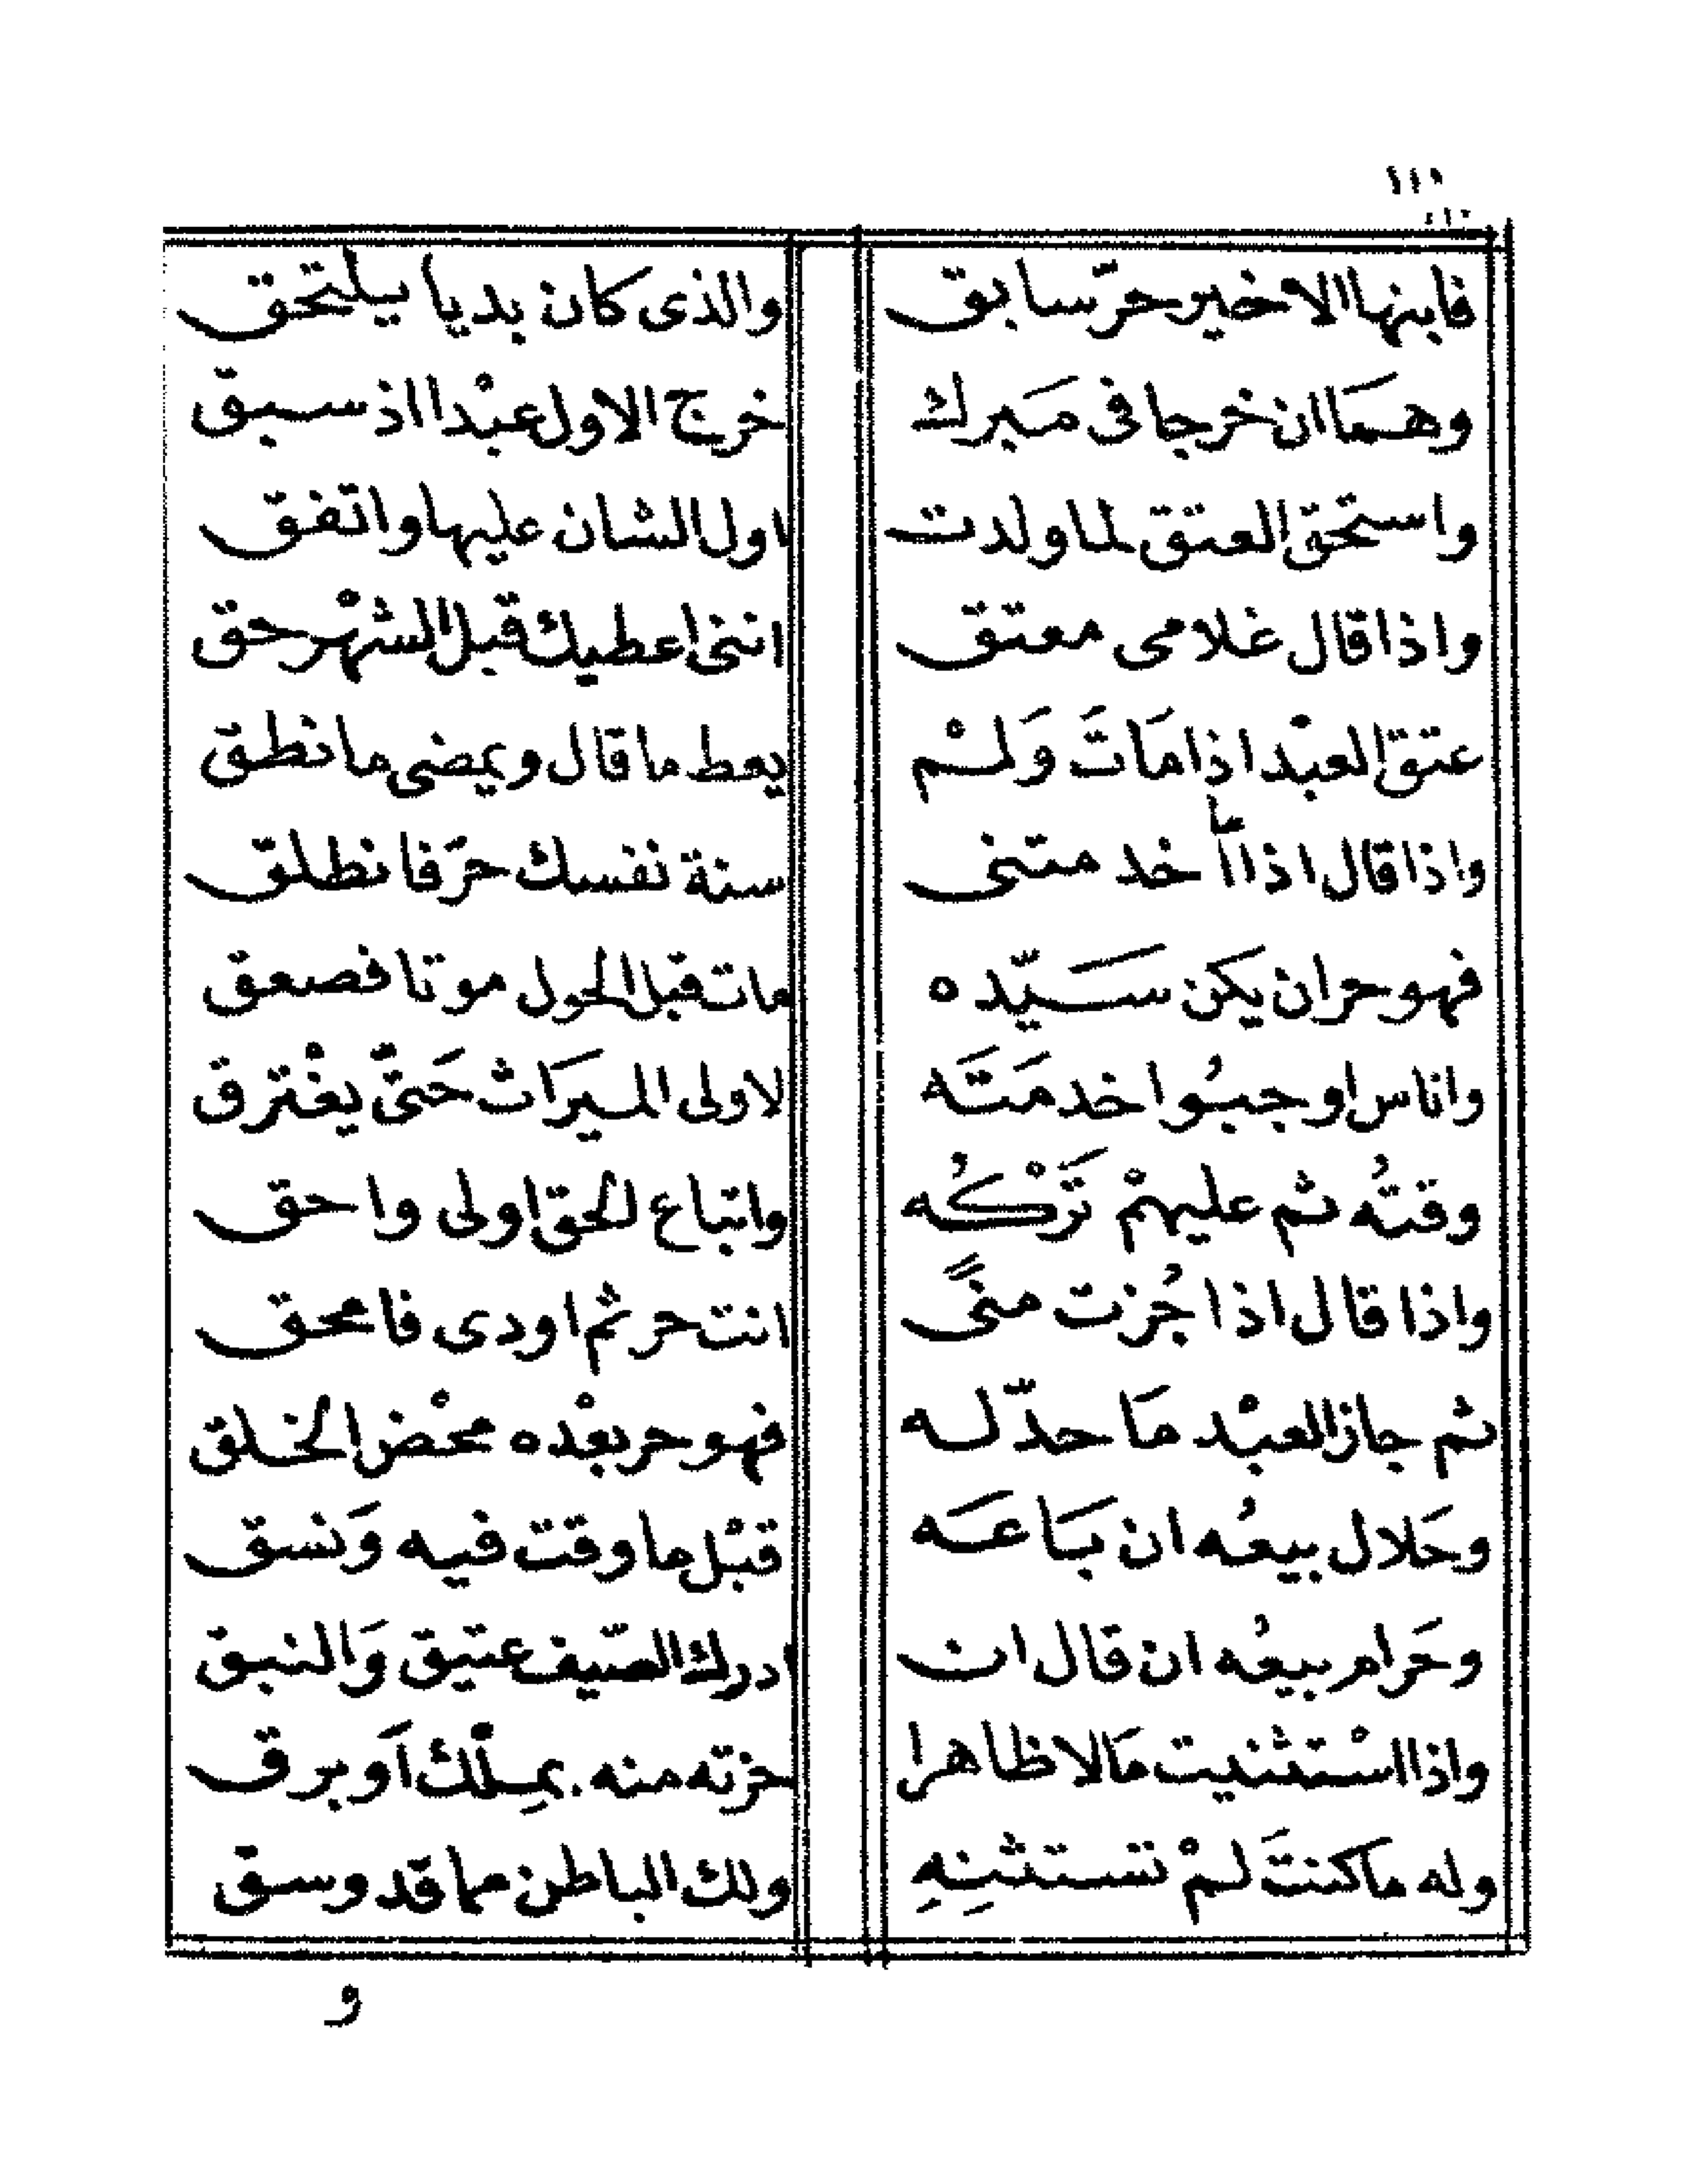 ١١٥
فابنها الاخير حرّ سابق والذى كان بديا يلتحق
وهمَا ان خرجا فى مَبرك خرج الاول عبْدا اذ سبق
واستحق العتق لما ولدت اول الشان عليها واتفق
واذا قال غلامى معتق اننى اعطيك قبل الشهْر حق
عتق العبْد اذا مَاتَ وَلمْ يعط ما قال ويمضى ما نطق
واذا قال اذا خدمتنى سنة نفسك حرّ فانطلق
فهو حر ان يكن سَيّده مات قبل الحول موتا فصعق
واناس اوجبُوا خدمَتَه لاولى الميرَاث حَتّى يغْترق
وقتُه ثم عليهمْ تَرْكُه واتباع الحق اولى واحق
واذا قال اذا جُزت منًى انت حر ثم اودى فامحق
ثم جاز العبْد مَا حدّ له فهو حر بعْده محْض الخلق
وحَلال بيعُه ان بَاعَه قبْل ما وقت فيه وَنسق
وحَرام بيعُه ان قال ان ادرك الصّيف عتيق وَالنبق
واذا اسْتثنيت مَالا ظاهرا حزته منه بمِلْك اَو برق
وله ما كنتَ لمْ تستثنِهِ ولك الباطن مما قد وسق
و